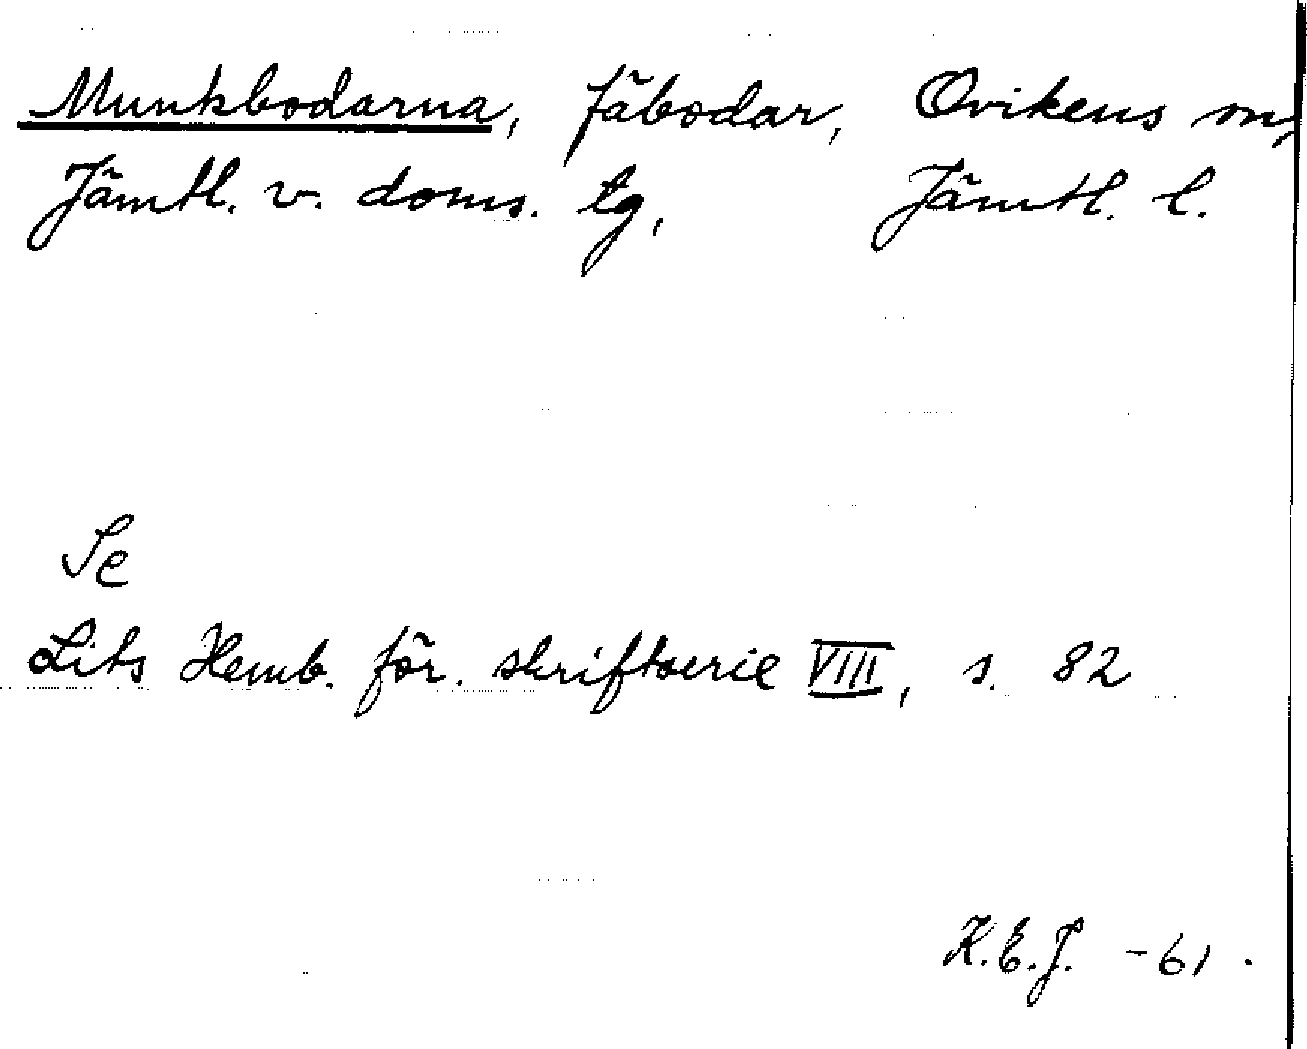 Munkbodarna, fäbodar, Ovikens sn,
Jämtl. v. doms. tg, Jämtl. l.
Se
Lits Hemb. för. skriftserie VIII, s. 82
K.E.J. -61.